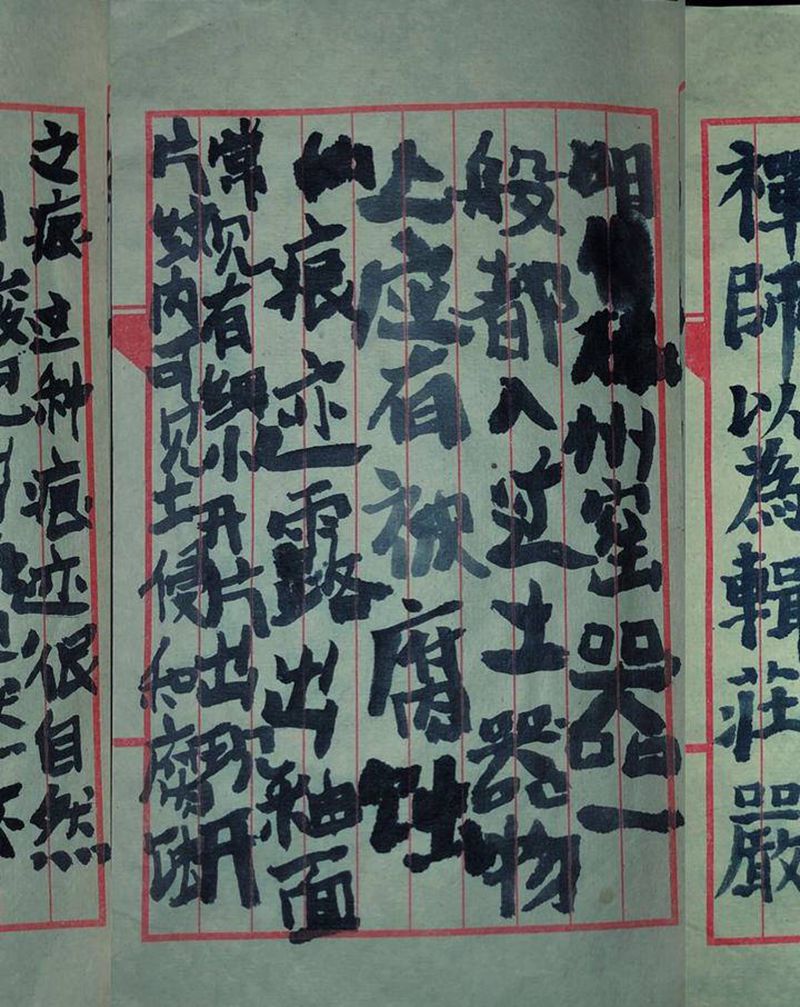 禪師以為輯莊嚴
明州窑器一
般都入过土器物
上应有被腐蚀
痕迹露出釉面
常见有细小开片出现开
片纹内可见土侵和腐蚀
之痕这种痕迹很自然